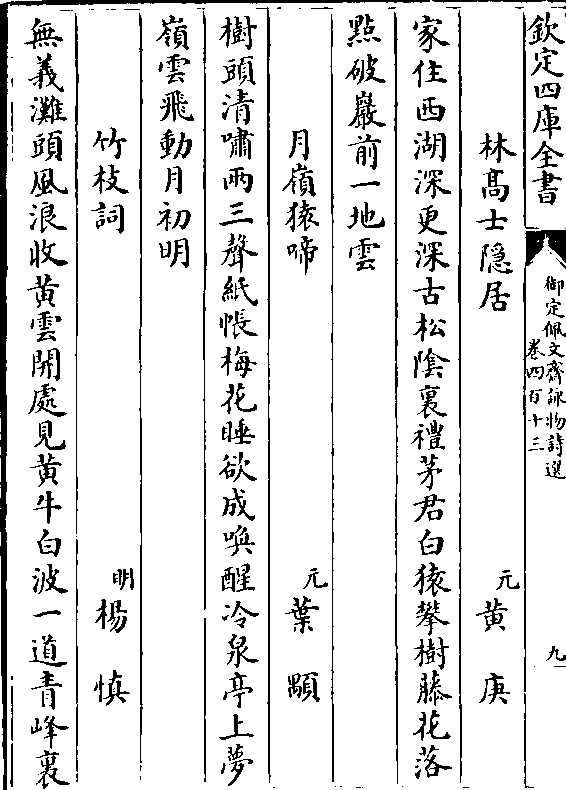 欽定四庫全書
御定佩文齋詠物詩選
卷四百十三
九
林髙士隱居
元黄庚
家住西湖深更深古松陰裏禮茅君白猿攀樹藤花落
點破巖前一地雲
月嶺猿啼
元葉顒
樹頭清嘯兩三聲紙帳梅花睡欲成喚醒冷泉亭上夢
嶺雲飛動月初明
竹枝詞
明楊慎
無義灘頭風浪收黄雲開處見黄牛白波一道青峰裏